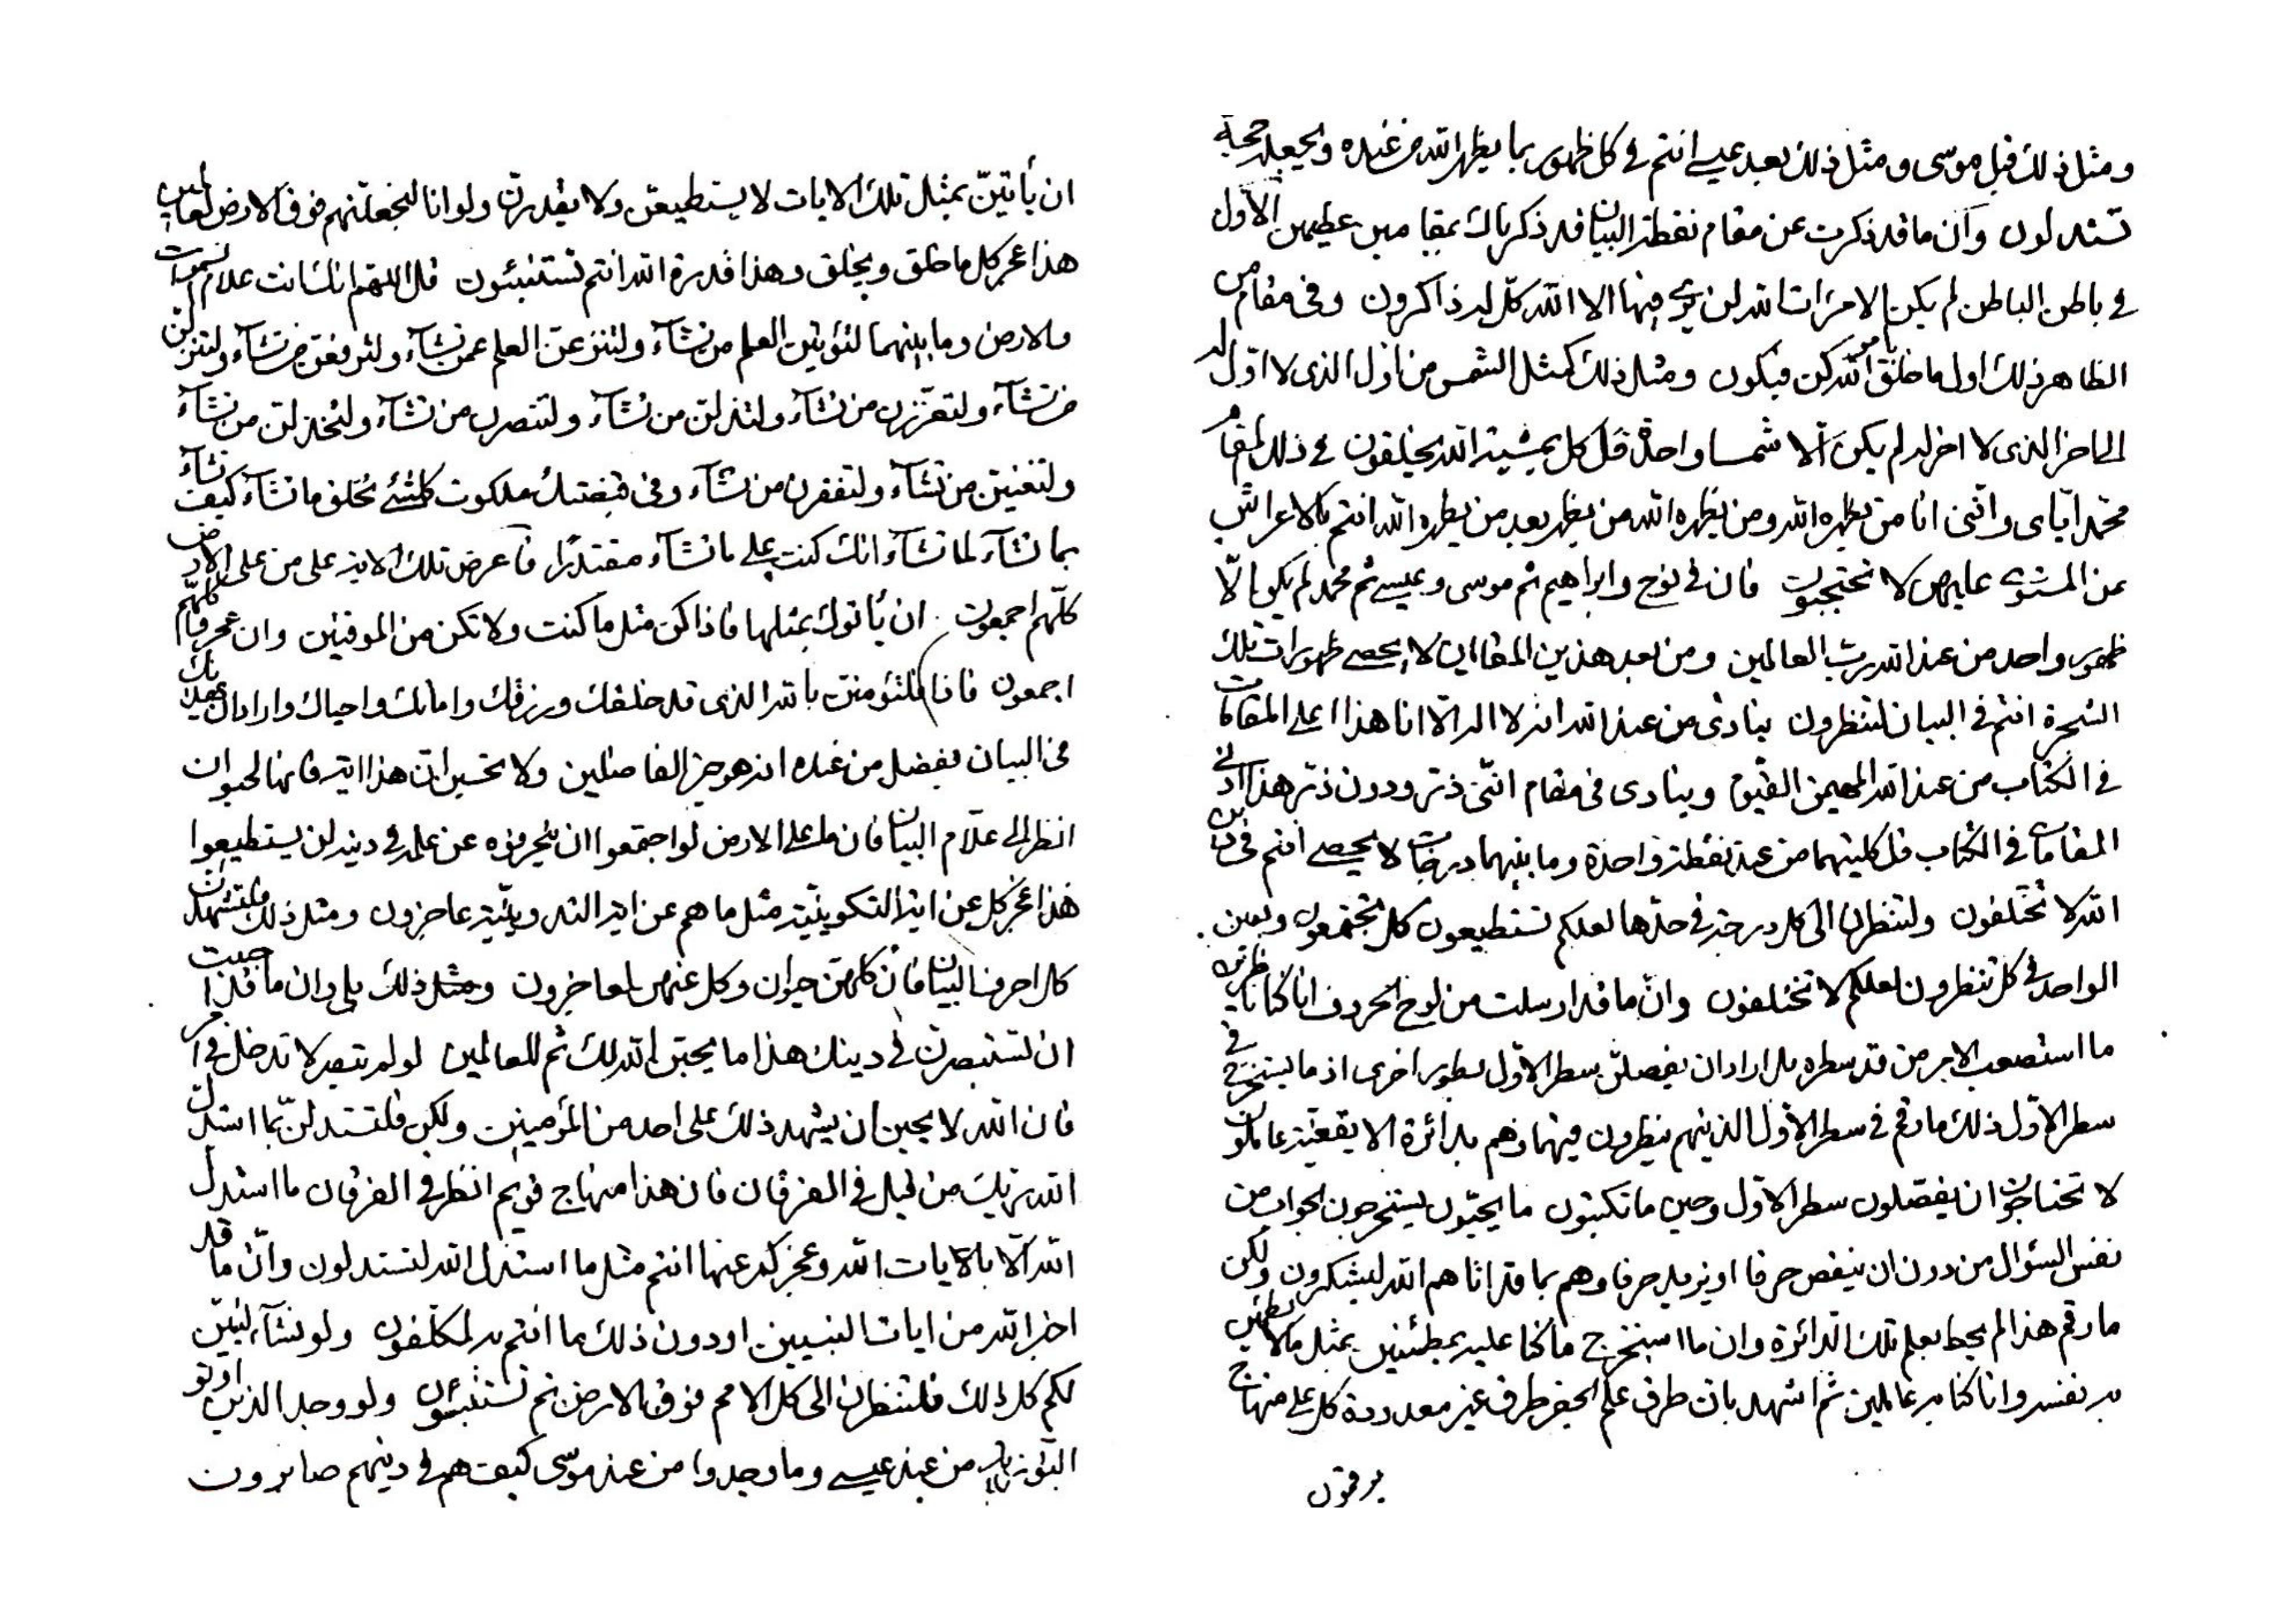 ومثل ذلك قبل موسى ومثل ذلك بعد عيسى انتم في كل ظهور بما يظهر الله من عنده ويجعله حجة
تستدلون وان ما قد ذكرت عن مقام نقطة البيان قد ذكرناك بمقامين عظيمين الاول
في باطن الباطن لم يكن الا مرات الله لن يرى فيها الا الله كل له ذاكرون وفي مقام من
الظاهر ذلك اول ما خلق بامر الله كن فيكون ومثل ذلك كمثل الشمس من اول الذي لا اول له
الى اخر الذي لا اخر له لم يكن الا شمسا واحدة قل كل بمشية الله يخلقون في ذلك المقام
محمد اياى وانني انا من يظهره الله ومن يظهره الله من يظهر بعد من يظهره الله انتم بالاعراش
عن المستوى عليهن لا تحتجبون فان في نوح وابراهيم ثم موسى وعيسى ثم محمد لم يكن الا
ظهور واحد من عند الله رب العالمين ومن بعد هذين المقامين لا يحصى ظهورات تلك
الشجرة انتم في البيان لتنظرون ينادى من عند الله انه لا اله الا انا هذا اعلى المقامات
في الكتاب من عند الله المهيمن القيوم وينادى في مقام انني ذر ودون ذر هذا ادنى
المقامات في الكتاب قل كليهما من عند نقطة واحدة وما بينهما درجات لا يحصى انتم في دين
الله لا تختلفون ولتنظرن الى كل درجة في حدها لعلكم تستطيعون كل تجتمعون وبعين
الواحد في كل تنظرون لعلكم لا تختلفون وان ما قد ارسلت من لوح الحروف انا كنا ناظرين
ما استصعب الامر من قد سطره بل اراد ان يفصلن سطر الاول بطور اخرى اذ ما يستخرج في
سطر الاول ذلك ما رقم في سطر الاول الذينهم ينظرون فيها وهم بدائرة الا يقغية عاملون
لا تحتاجون ان يفصلون سطر الاول وحين ما تكتبون ما يحبون يستخرجون الجواب من
نفس السؤال من دون ان ينقص حرفا او يزيد حرفا وهم بما قد اتاهم الله ليشكرون ولكن
ما رقم هذا لم يحط بعلم تلك الدائرة وان ما استخرج ما كنا عليه بمطئنين بمثل ما لا يطئن
به نفسه وانا كنا به عالمين ثم اشهد بان طرق علم الجفر طرق غير معدودة كل على منهاج
يرقمون
ان يأتين بمثل تلك الايات لا يستطيعن ولا يقدرن ولو انا لنجعلنهم فوق الارض لعالمين
هذا عجز كل ما خلق ويخلق وهذا قدرة الله انتم تستنبئون قل اللهم انك انت علام السموات
والارض وما بينهما لتؤتين العلم من تشآء ولتنزعن العلم عمن تشآء ولترفعن من تشآء ولتنزلن
من تشآء ولتعززن من تشآء ولتذلن من تشآء ولتنصرن من تشآء ولتخذلن من تشآء
ولتغنين من تشآء ولتفقرن من تشآء وفي قبضتك ملكوت كلشئ تخلق ما تشآء كيف تشآء
بما تشآء لما تشآء انك كنت على ما تشآء مقتدرا فاعرض تلك الاية على من على الارض
كلهم اجمعون ان يأتوك بمثلها فاذا كن مثل ما كنت ولا تكن من الموقنين وان عجز كلهم
اجمعون فاذا فلتؤمنن بالله الذي قد خلقك ورزقك واماتك واحياك واراد ان يهديك
في البيان بفضل من عنده انه هو خير الفاضلين ولا تحسبن ان هذا اية فانها لحيوان
انظر الى علام البيان فان ما على الارض لو اجتمعوا ان يحرفوه عن علمه في دينه لن يستطيعوا
هذا عجز كل عن اية التكوينية مثل ما هم عن اية التدوينية عاجزون ومثل ذلك فلتشهدن
كل احرف البيان فان كلهن حيوان وكل عنهن لعاجزون ومثل ذلك بلى وان ما قد اجبت
ان تستبصرن في دينك هذا ما يحبن الله لك ثم للعالمين لو لم يتبصر لا تدخل في امر
فان الله لا يحبن ان يشهد ذلك على احد من المؤمنين ولكن فلتستدلن بما استدل
الله ربك من قبل في الفرقان فان هذا منهاج قويم انظر في الفرقان ما استدل
الله الا بالايات الله وعجز كل عنها انتم مثل ما استدل الله لتستدلون وان ما قد
اخبر الله من ايات النبيين او دون ذلك ما انتم به لمكلفون ولو نشآء لنبين
لكم كل ذلك فلتنظرن الى كل الامم فوق الارض ثم تستنبئون ولو وجد الذين اوتو
التورية من عند عيسى وما وجدوا من عند موسى كيف هم في دينهم صابرون